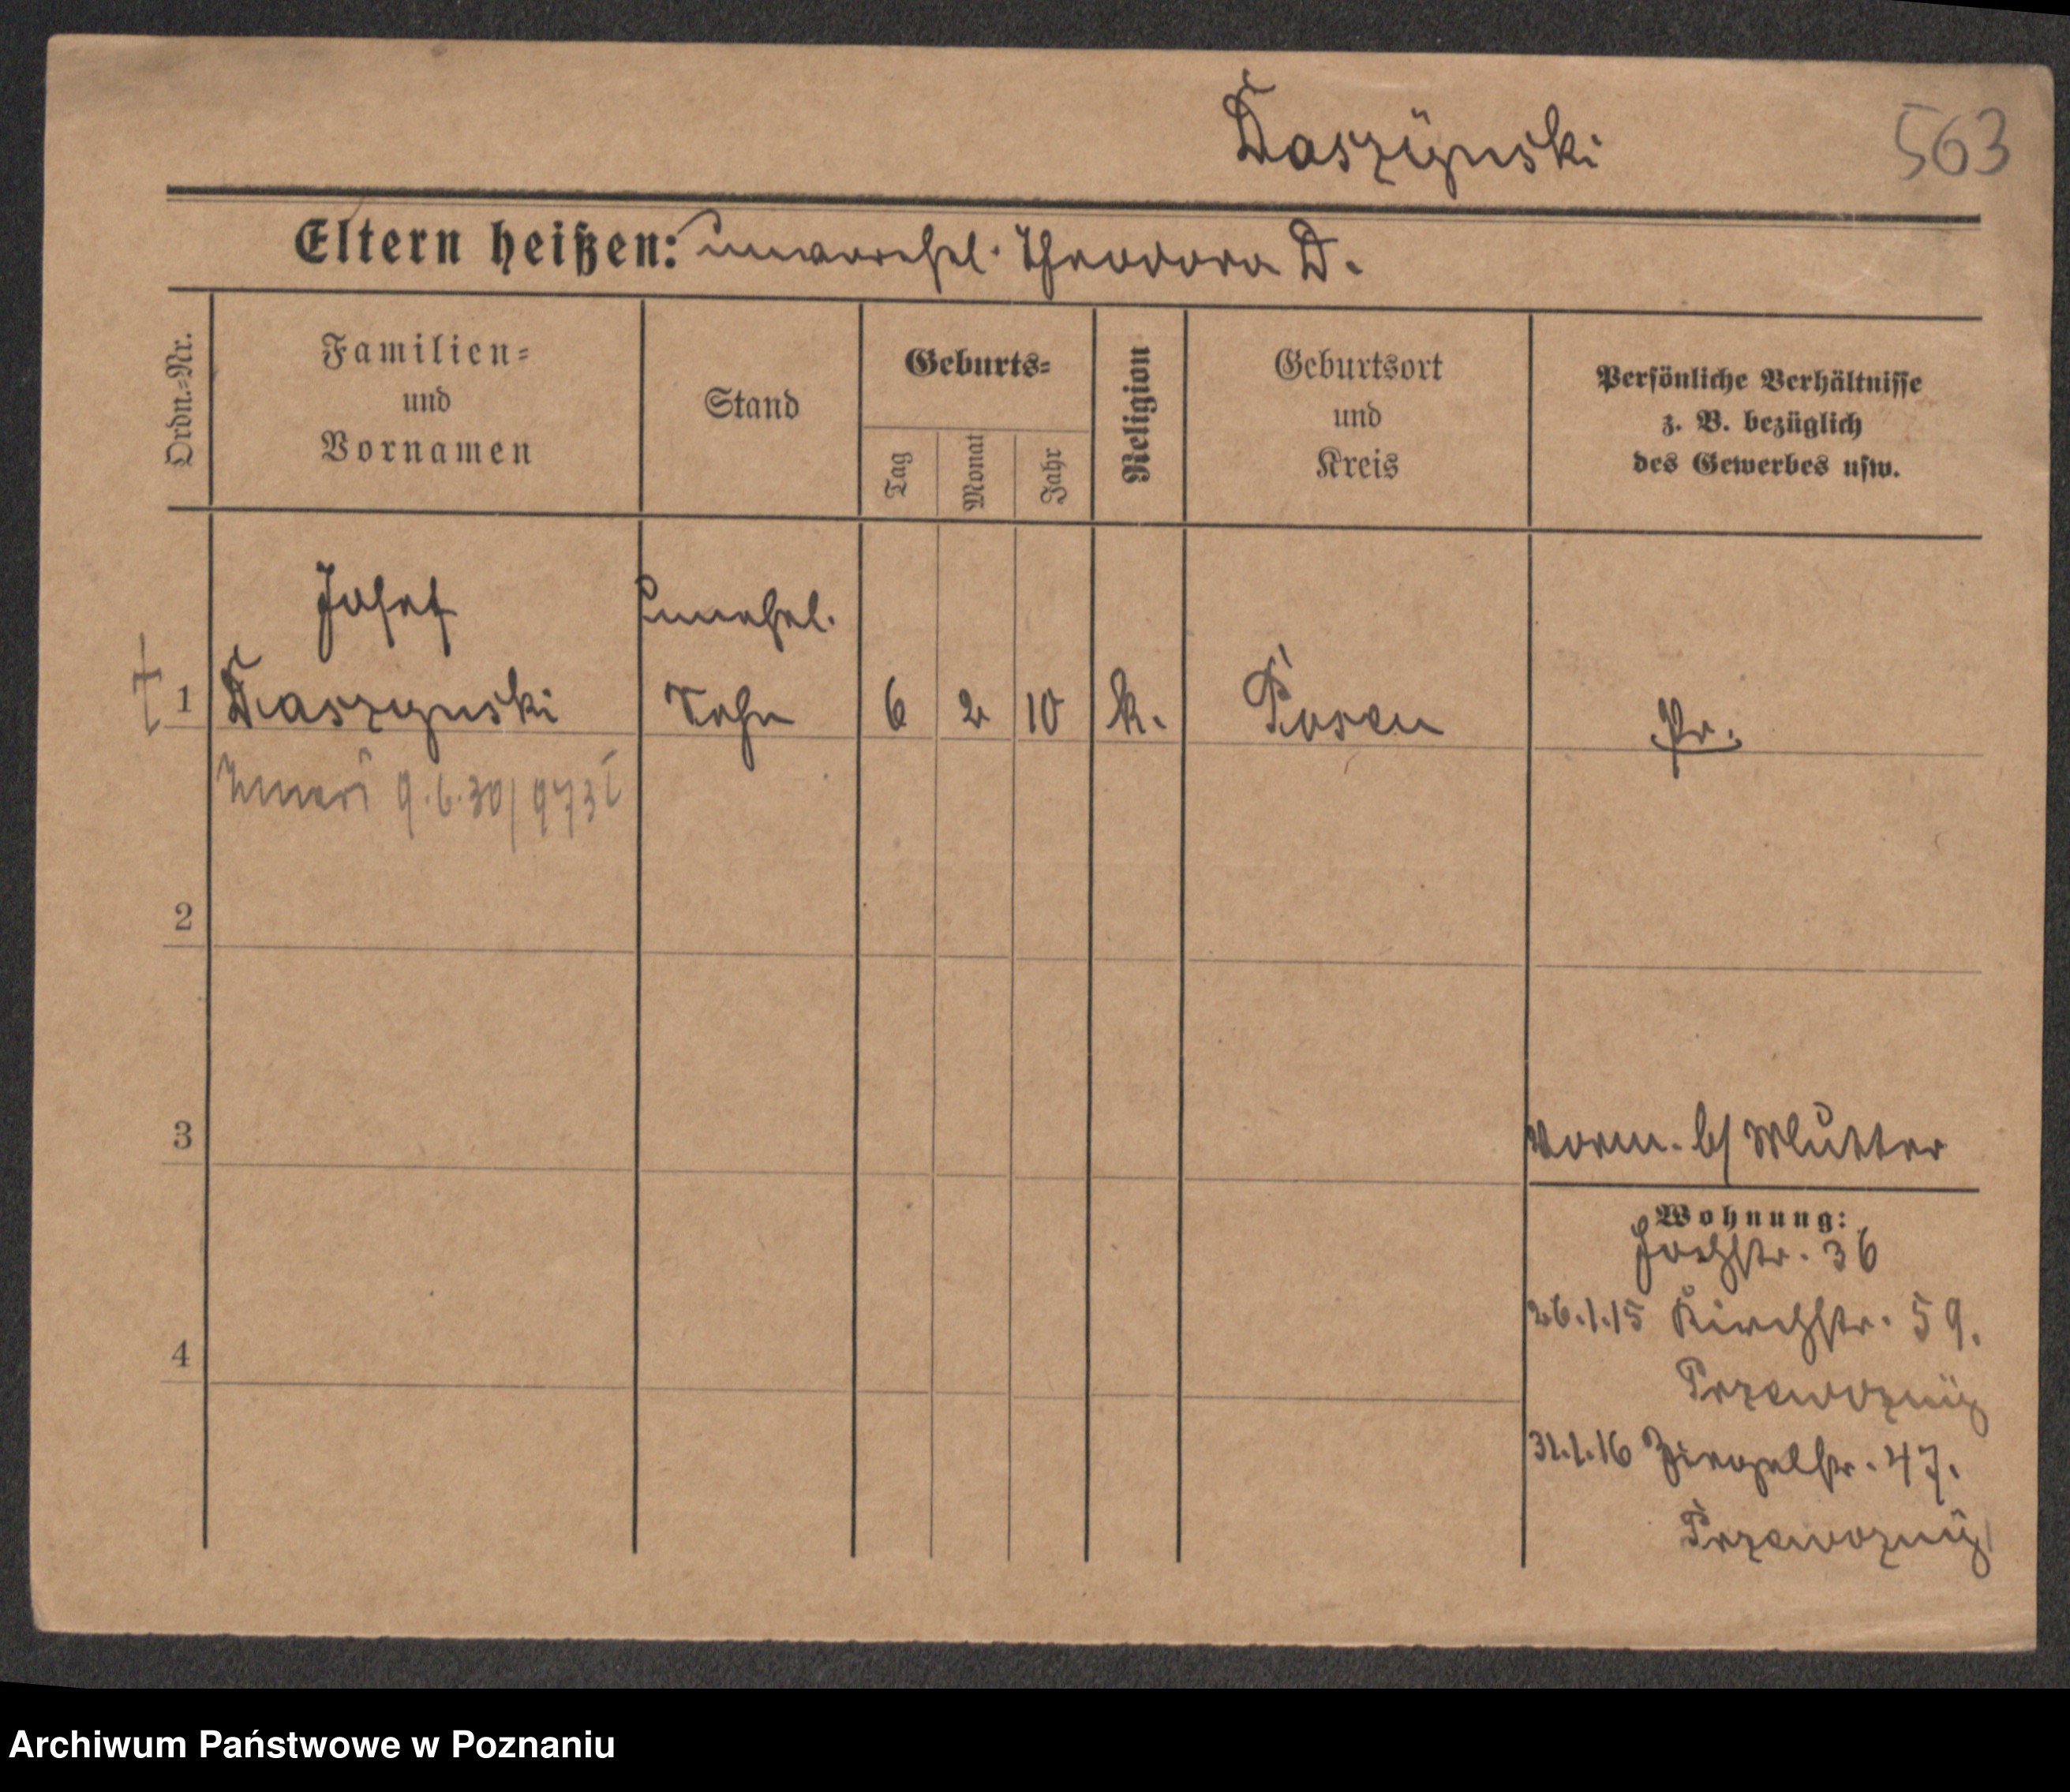 Daszÿnski
563
Eltern heißen: unverehel. Theodora D.
Ordn.=Nr.
Familien=
und
Vornamen
Stand
Geburts=
Tag
Monat
Jahr
Religion
Geburtsort
und
Kreis
Persönliche Verhältnisse
z. B. bezüglich
des Gewerbes usw.
Josef unehel.
† 1 Daszynski Sohn 6 2 10 k. Posen Pr.
9.6.30
2
3
Vorm. b/ Mutter
Wohnung:
36
4
26.1.15 Kirchstr. 59.
Przewoznÿ
31.1.16 Ziegelstr. 47.
Przewoznÿ
Archiwum Państwowe w Poznaniu